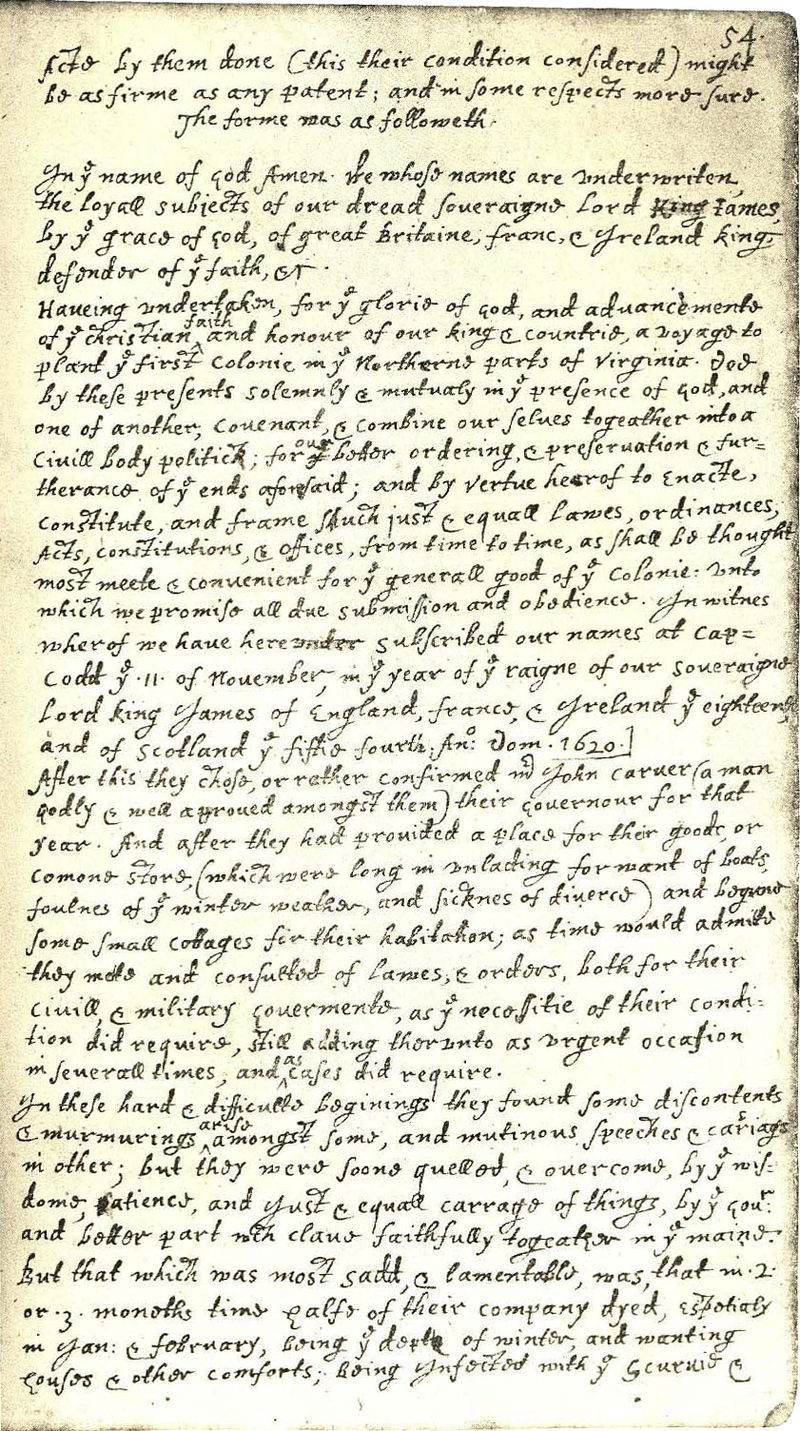 54.
Acts by them done (this their condition considered) might
be as firme as any patent; and in some respects more sure.
The forme was as followeth.
In yͤ name of god Amen. We whose names are underwriten,
the loyall subjects of our dread soveraigne Lord King James,
by yͤ grace of god, of great Britaine, franc, & Ireland king,
defender of yͤ faith, &c.
Haveing undertaken, for yͤ glorie of god, and advancemente
of yͤ christian faith and honour of our king & countrie, a voyage to
plant yͤ first colonie in yͤ Northerne parts of Virginia. Doe
by these presents solemnly & mutualy in yͤ presence of god, and
one of another, covenant, & combine our selves togeather into a
Civill body politick; for our better ordering, & preservation & fur=
therance of yͤ ends aforsaid; and by vertue hearof to Enacte,
constitute, and frame shuch just & equall lawes, ordinances,
Acts, constitutions, & offices, from time to time, as shall be thought
most meete & convenient for yͤ generall good of yͤ Colonie: unto
which we promise all due submission and obedience. In witnes
wherof we have hereunder subscribed our names at Cap=
Codd yͤ .11. of November, in yͤ year of yͤ raigne of our soveraigne
Lord king James of England, france, & Ireland yͤ eighteenth
and of Scotland yͤ fiftie fourth. Anͦ: Dom. 1620.]
After this they chose, or rather confirmed mͬ John carver (a man
godly & well approved amongst them) their governour for that
year. And after they had provided a place for their goods, or
comone store, (which were long in unlading for want of boats,
foulnes of yͤ winter weather, and sicknes of diverce) and begune
some small cottages for their habitation; as time would admitte
they mette and consulted of lawes, & orders, both for their
civill, & military govermente, as yͤ necessitie of their condi=
tion did require, still adding therunto as urgent occasion
in severall times, and as cases did require.
In these hard & difficulte beginings they found some discontents
& murmurings arise amongst some, and mutinous speeches & cariags
in other; but they were soone quelled, & overcome, by yͤ wis=
dome, patience, and just & equall carrage of things, by yͤ govͬ.
and better part wch clave faithfully togeather in yͤ maine.
But that which was most sadd, & lamentable, was, that in .2.
or .3. moneths time halfe of their company dyed, espetialy
in Jan: & february, being yͤ depth of winter, and wanting
houses & other comforts; being Infected with yͤ Scurvie &